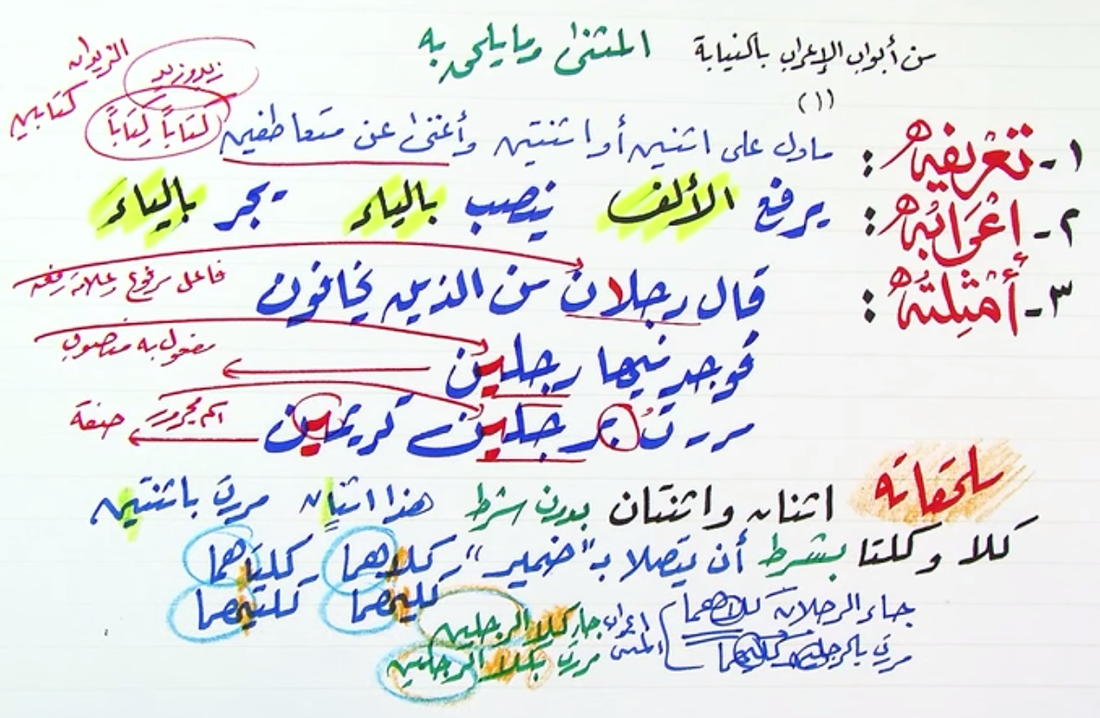 من أبواب الإعراب بالنيابة المثنى وما يلحق به
(١)
١- تعريفه : ما دل على اثنين أو اثنتين وأغنى عن متعاطفين
زيد وزيد الزيدان
كتاباً كتاباً كتابين
٢- إعرابه : يرفع الألف ينصب بالياء يجر بالياء
٣- أمثلته : قال رجلان من الذين يخافون فاعل مرفوع وعلامة رفعه
فوجد فيها رجلين مفعول به منصوب
مررت برجلين كريمين اسم مجرور صفة
ملحقاته اثنان واثنتان بدون شرط هذا اثنان مررت باثنتين
كلا وكلتا بشرط أن يتصلا بـ "ضمير" كلاهما كلتاهما
كليهما كلتيهما
جاء الرجلان كلاهما
مررت بالرجلين كليهما
إعراب المثنى
جاء كلا الرجلين
مررت بكلا الرجلين